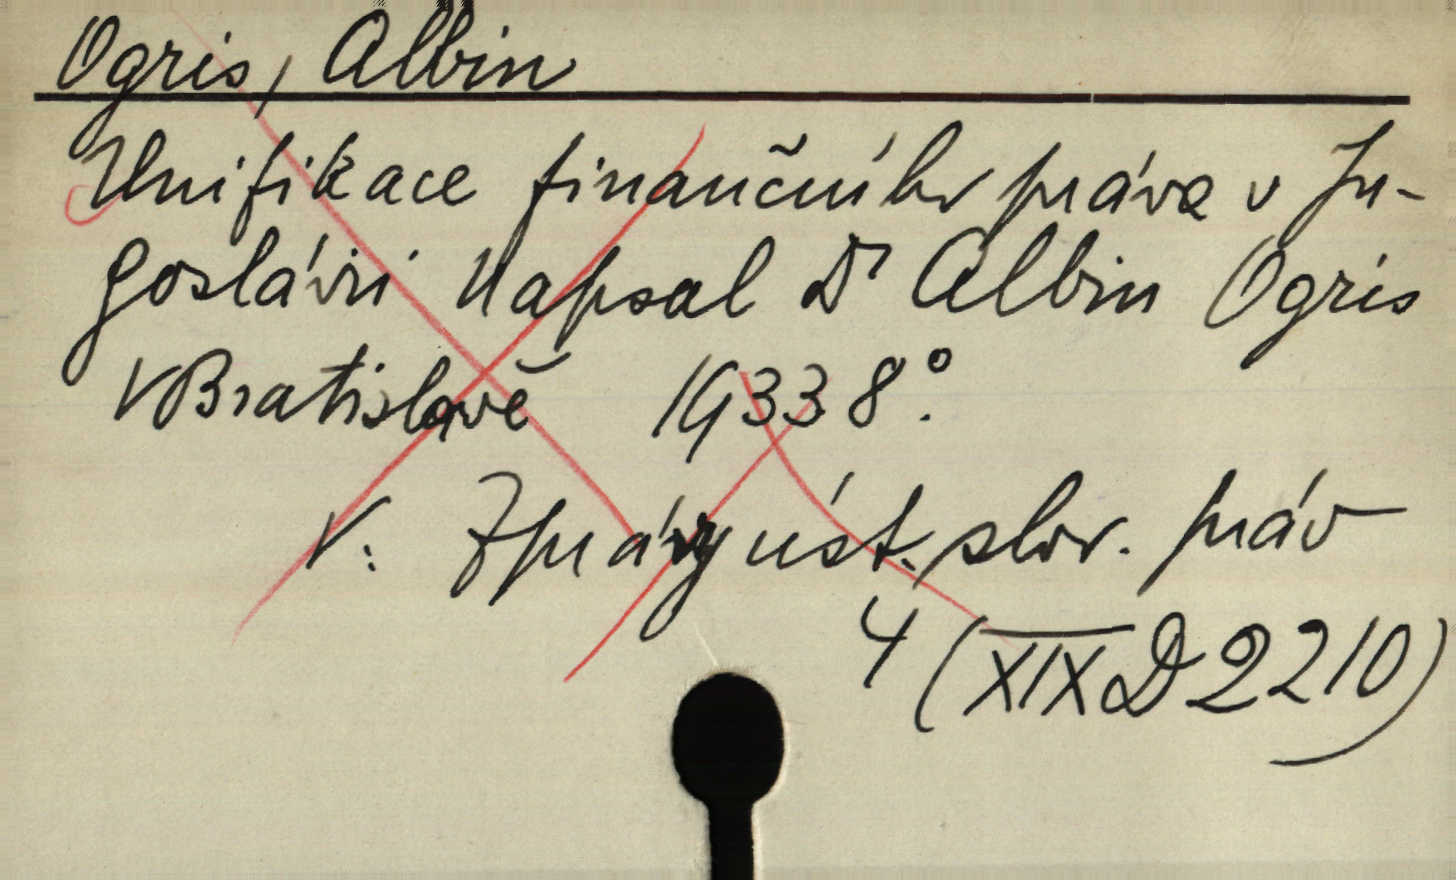 Ogris, Albin
Unifikace finančního práva v Ju-
goslávii Napsal Dr Albin Ogris
V Bratislavě 1933 8°.
V: Zprávy úst. slov. práv
4 (XIX D 2210)